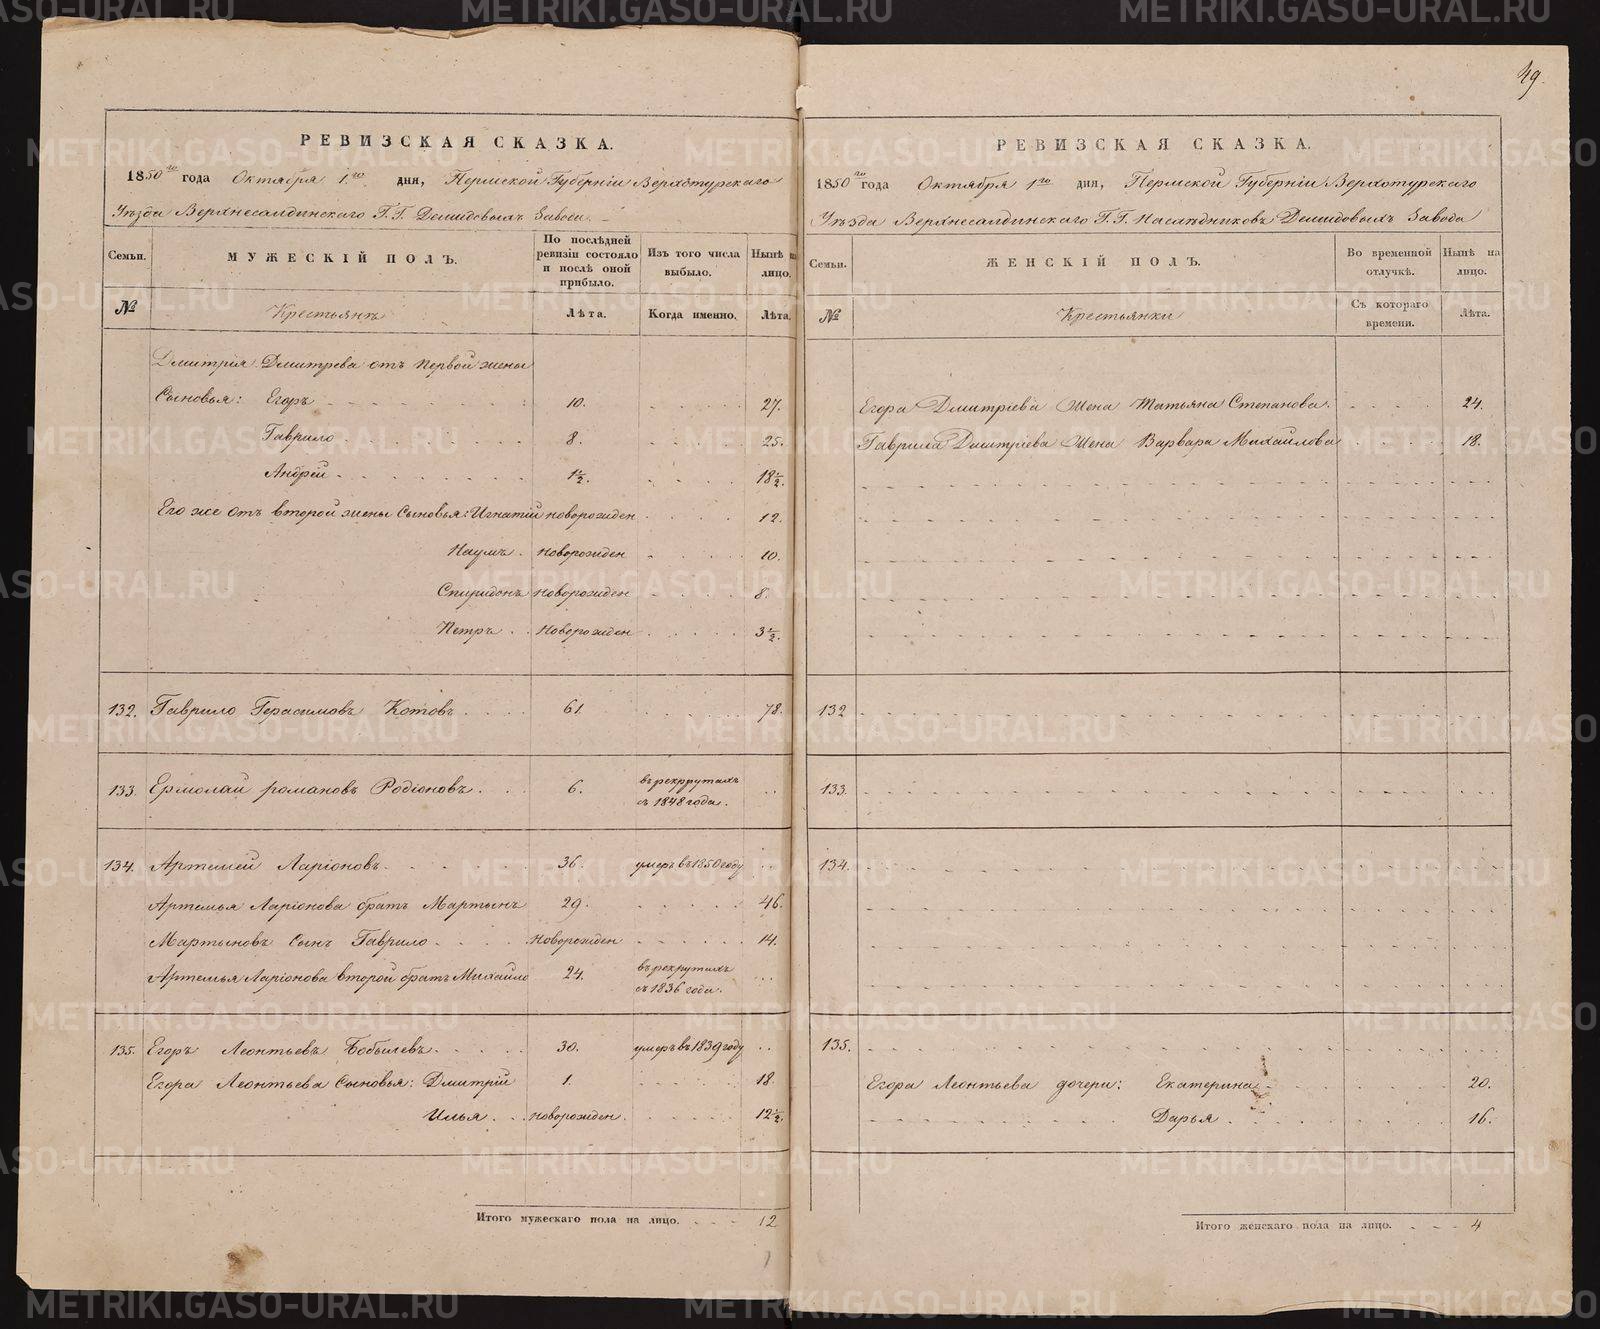 49.
РЕВИЗСКАЯ СКАЗКА.
1850го года Октября 1го дня, Пермской Губерніи Верхотурскаго
Уѣзда Верхнесалдинскаго Г.Г. Демидовыхъ Завода
Семьи. МУЖЕСКІЙ ПОЛЪ. По послѣдней ревизіи состояло и послѣ оной прибыло. Изъ того числа выбыло. Нынѣ на лицо.
№ Крестьянъ Лѣта. Когда именно. Лѣта.
Дмитрія Дмитрева отъ первой жены
Сыновья: Егоръ 10. 27.
Гаврило 8. 25.
Андрей 1½. 18½.
Его же отъ второй жены Сыновья: Игнатій новорожден 12.
Наумъ новорожден 10.
Спиридонъ новорожден 8.
Петръ новорожден 3½.
132. Гаврило Герасимовъ Котовъ 61. 78.
133. Ермолай романовъ Родіоновъ 6. въ рекрутахъ съ 1848 года.
134. Артемей Ларіоновъ 36. умеръ въ 1850 году
Артемья Ларіонова братъ Мартынъ 29. 46.
Мартыновъ Сынъ Гаврило новорожден 14.
Артемья Ларіонова второй братъ Михайло 24. въ рекрутахъ съ 1836 года.
135. Егоръ Леонтьевъ Бобылевъ 30. умеръ въ 1839 году
Егора Леонтьева Сыновья: Дмитрій 1. 18.
Илья новорожден. 12½.
Итого мужескаго пола на лицо. 12
РЕВИЗСКАЯ СКАЗКА.
1850го года Октября 1го дня, Пермской Губерніи Верхотурскаго
Уѣзда Верхнесалдинскаго Г.Г. Наслѣдниковъ Демидовыхъ Завода
Семьи. ЖЕНСКІЙ ПОЛЪ. Во временной отлучкѣ. Нынѣ на лицо.
№ Крестьянки Съ котораго времени. Лѣта.
Егора Дмитріева Жена Татьяна Степанова. 24.
Гаврила Дмитріева Жена Варвара Михайлова 18.
132
133.
134.
135.
Егора Леонтьева дочери: Екатерина 20.
Дарья 16.
Итого женскаго пола на лицо. 4
METRIKI.GASO-URAL.RU